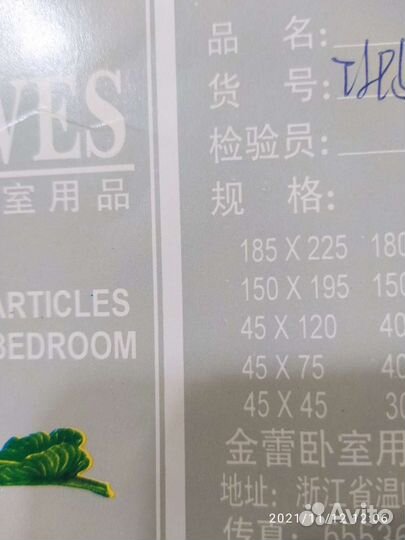 VES
室用品
ARTICLES
BEDROOM
品 名:
货 号:
检验员:
规 格:
185 X 225 180
150 X 195 150
45 X 120 40
45 X 75 40
45 X 45 30
金蕾卧室用
地址: 浙江省温
传真:
Avito
2021/11/12 12:06